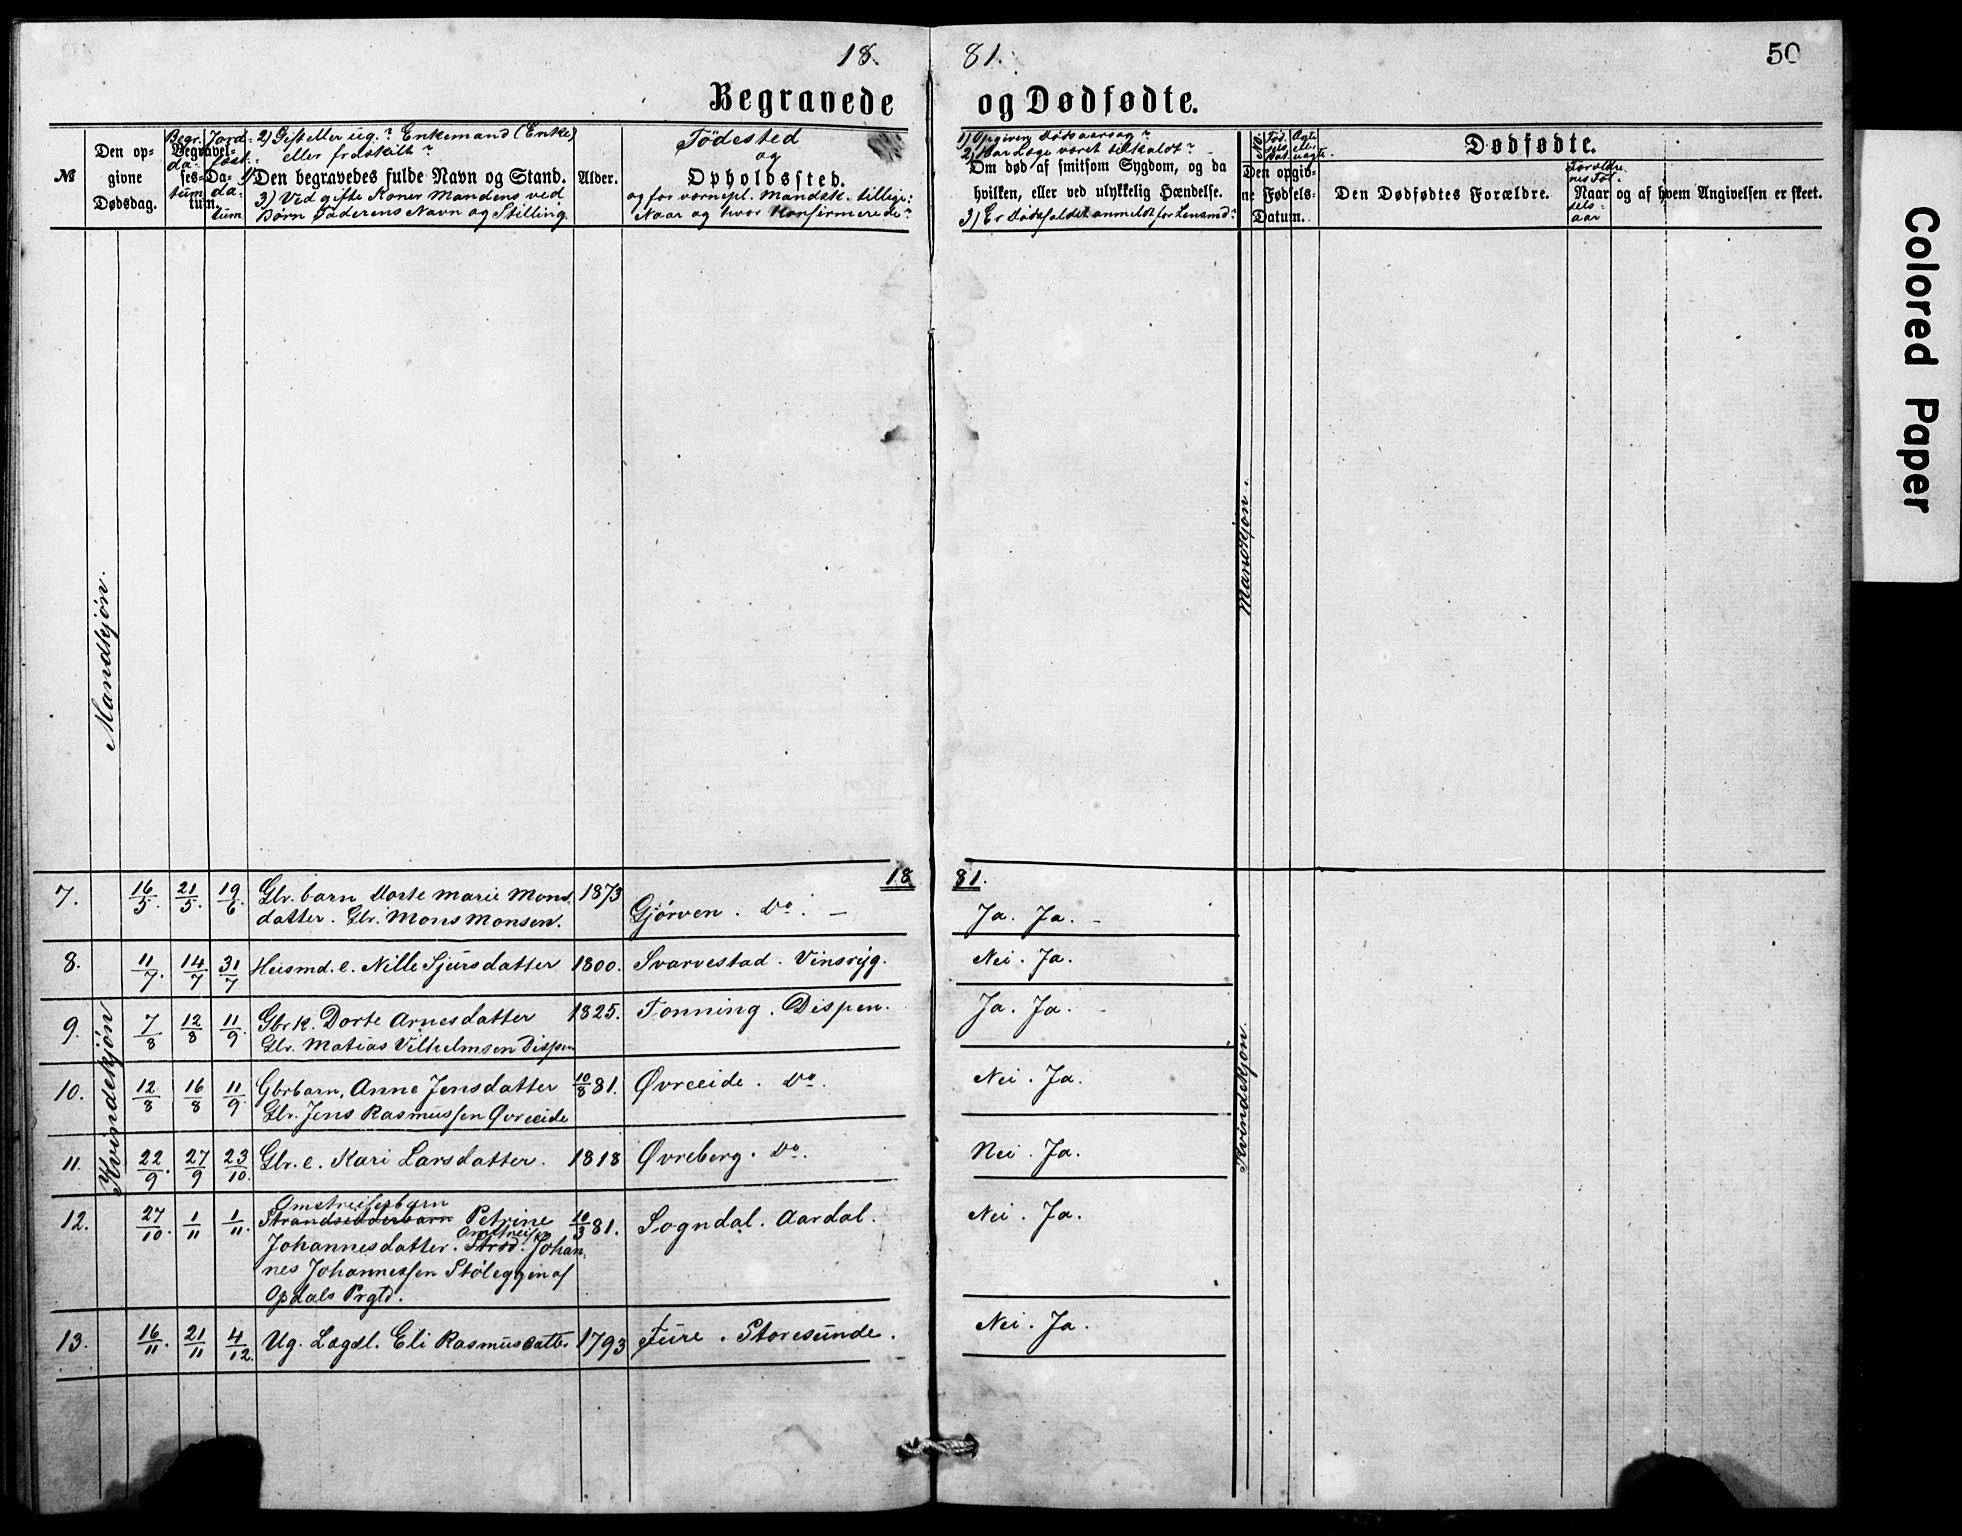 18. 81. 50
Begravede og Dødfødte.
№
Den op-
givne
Dødsdag.
Begr.
da-
tum
Begravel-
ses-Da-
tum.
Jord-
fæst.
da-
tum
2) Gift eller ug.? Enkemand (Enke)
eller fraskilt?
1) Den begravedes fulde Navn og Stand.
3) Ved gifte Koner Mandens ved
Børn Faderens Navn og Stilling.
Alder.
Fødested
og
Opholdssted.
og for vornepl. Mandsk. tillige:
Naar og hvor Konfirmerede?
1) Opgiven Dødsaarsag?
2) Har Læge været tilkaldt?
Om død af smitsom Sygdom, og da
hvilken, eller ved ulykkelig Hændelse.
3) Er Dødsfaldet anmeldt for Lensmd?
No.
Den opgiv-
ne Fødsels-
Datum.
Dødfødte.
Den Dødfødtes Forældre.
Forældre-
nes Fød-
sels-
aar
Naar og af hvem Angivelsen er skeet.
Mandkjøn.
Mandkjøn.
18 81.
7. 16/5. 21/5. 19/6. Gbr. barn Dorte Marie Mons-
datter. Gbr. Mons Monsen. 1873 Gjørven. Do. — Ja. Ja. –
8. 11/7. 14/7 31/7 Husmd. e. Nille Sjursdatter 1800. Svarvestad. Vinsryg. Nei. Ja.
9. 7/8 12/8 11/9. Gbrk. Dorte Arnesdatter 1825. Tonning. Dispen. Ja. Ja.
Gbr. Matias Vilhelmsen Dispen
10. 12/8 16/8 11/9. Gbrbarn, Anne Jensdatter 10/8 81. Øvreeide. Do. Nei. Ja.
Gbr. Jens Rasmussen Øvreeide
11. 22/9. 27/9 23/10. Gbr. e. Kari Larsdatter. 1818 Øvreberg. Do. Nei. Ja.
Kvindekjøn
Kvindekjøn.
Omstreiferbarn
12. 27/10. 1/11 1/11. Strandsidderbarn Petrine 10/3 81. Sogndal. Aardal. Nei. Ja.
Omstreifer
Johannesdatter. Strsd. Johan-
nes Johannessen Støleggen af
Opdals Prgld.
13. 16/11. 21/11 4/12. Ug. Lægdl. Eli Rasmusdatter 1793 Fure. Storesunde. Nei. Ja.
Colored Paper